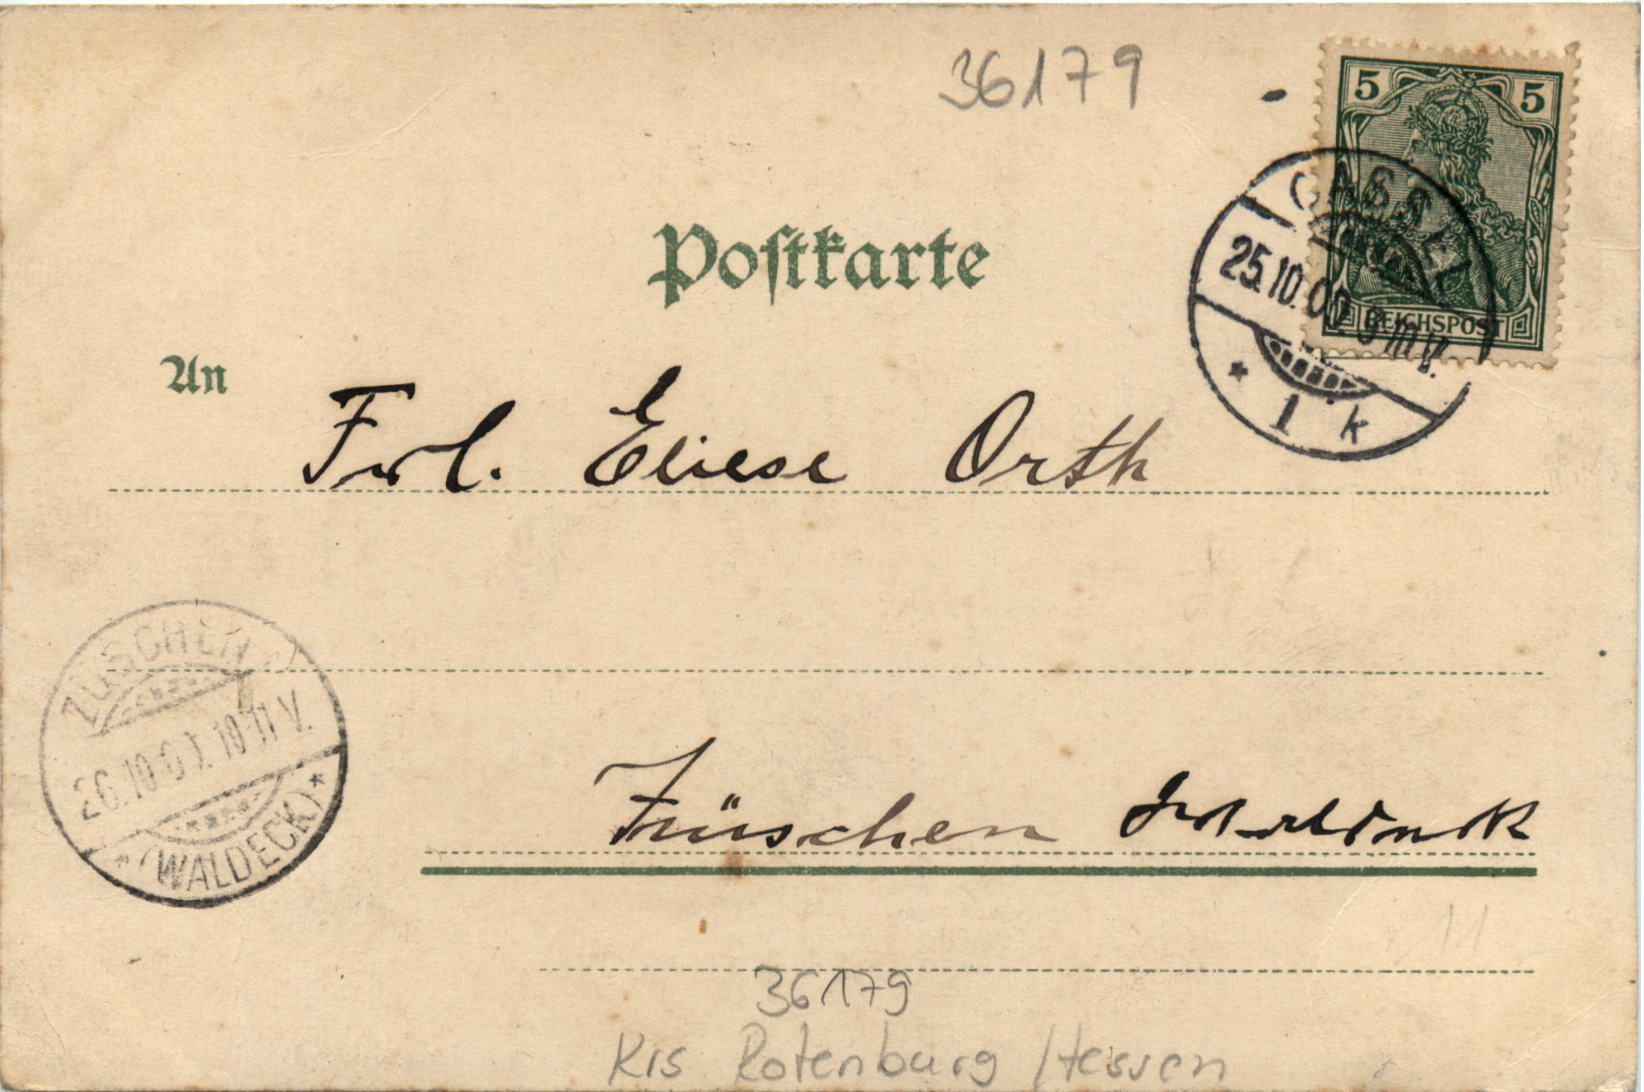 36179
5 5
REICHSPOST
CASSEL
25.10.00
* 1 k
Postkarte
An
Frl. Eliese Orth
ZÜSCHEN
26.10.00.10-11V.
* (WALDECK) *
Züschen
36179
Krs Rotenburg / Hessen